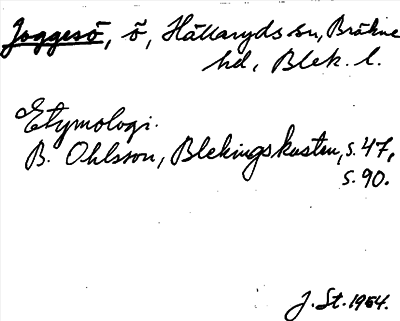 Joggesö, ö, Hällaryds sn, Bräkne
hd, Blek. l.
Etymologi.
B. Ohlsson, Blekingskusten, s. 47,
s. 90.
J. St. 1954.